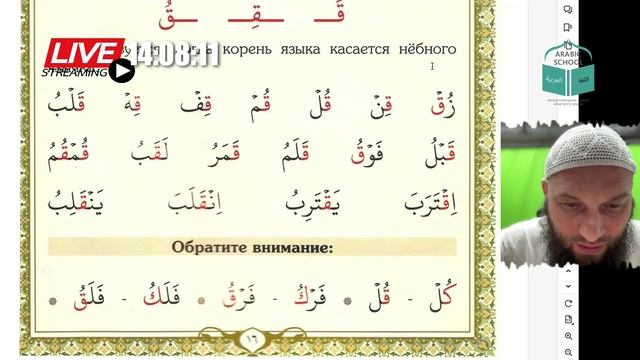 قَ ـقِـ ـقُ
LIVE
STREAMING
14:08:11
корень языка касается нёбного
ARABIC
SCHOOL
اللغة
العربية
زُقْ قِنْ قُلْ قُمْ قِفْ قِهْ قَلْبُ
قَبْلُ فَوْقُ قَلَمُ قَمَرُ لَقَبُ قُمْقُمُ
اِقْتَرَبَ يَقْتَرِبُ اِنْقَلَبَ يَنْقَلِبُ
Обратите внимание:
كُلْ - قُلْ * فَرْكُ - فَرْقُ * فَلَكُ - فَلَقُ *
١٦